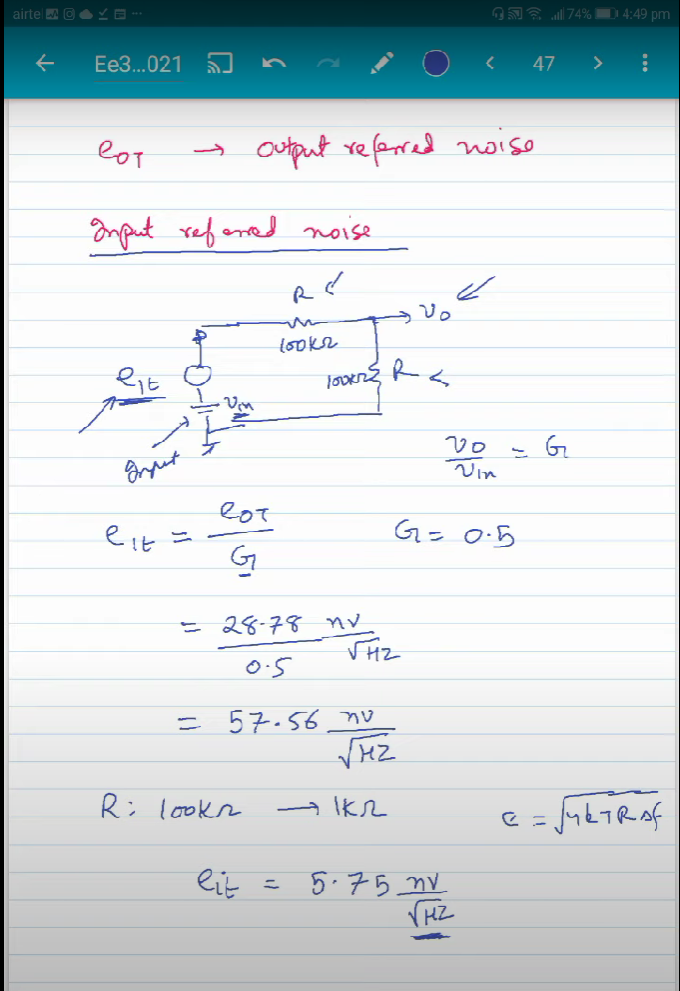 airtel 74% 4:49 pm
Ee3...021 47
eOT → output referred noise
Input referred noise
R
vo
100kΩ
100kΩ R
eit
vin
Input
vo/vin = G
eit = eOT/G G = 0.5
= 28.78/0.5 nv/√HZ
= 57.56 nv/√HZ
R: 100kΩ → 1kΩ e = √4kTRΔf
eit = 5.75 nv/√HZ